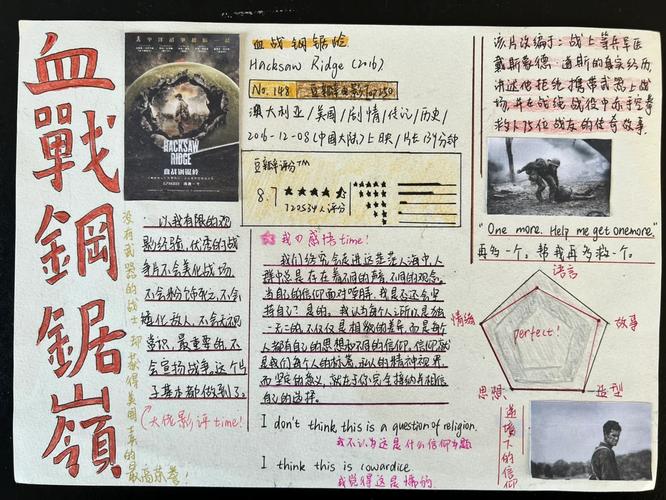 血戰鋼鋸嶺
HACKSAW
RIDGE
血战钢锯岭
血战钢锯岭
Hacksaw Ridge (2016)
No.148 豆瓣电影Top250
澳大利亚/美国/剧情/传记/历史/
2016-12-08(中国大陆)上映/片长139分钟
豆瓣评分™
8.7
720534人评分
该片改编于:战上等兵军医
戴斯蒙德·道斯的真实经历
讲述他拒绝携带武器上战
场,并在战绳战役中赤手空拳
救下75位战友的传奇故事.
"One more. Help me get onemore."
再多一个。帮我再多救一个。
没有武器的战士 却获得美国军事的最高荣誉!
以我有限的观
影经验,优秀的战
争片不会美化战场,
不会粉饰死亡,不会
矮化敌人,不会无视
常识,最重要的,不
会宣扬战争。这个片
子基本都做到了。
(大众影评time!
我の感悟time!
我们终究会走进这茫茫人海中,人
群中总是存在着不同的声音,不同的观念。
当自己的信仰面对嘲弄,我是否还会坚
持自己?是的。我认为每个人所以是独
一无二的,不仅仅是相貌的差异,而是每个
人都有自己的思想和不同的信仰。信仰就
是我们每个人的标签,私人的精神视界,
而坚定的意义,就在于你完全接纳并相信
自己的选择。
I don't think this is a question of religion.
我不认为这是什么信仰问题
I think this is cowardice.
我觉得这是懦弱的
语言
情绪
故事
perfect!
思想
造型
逆境下的信仰